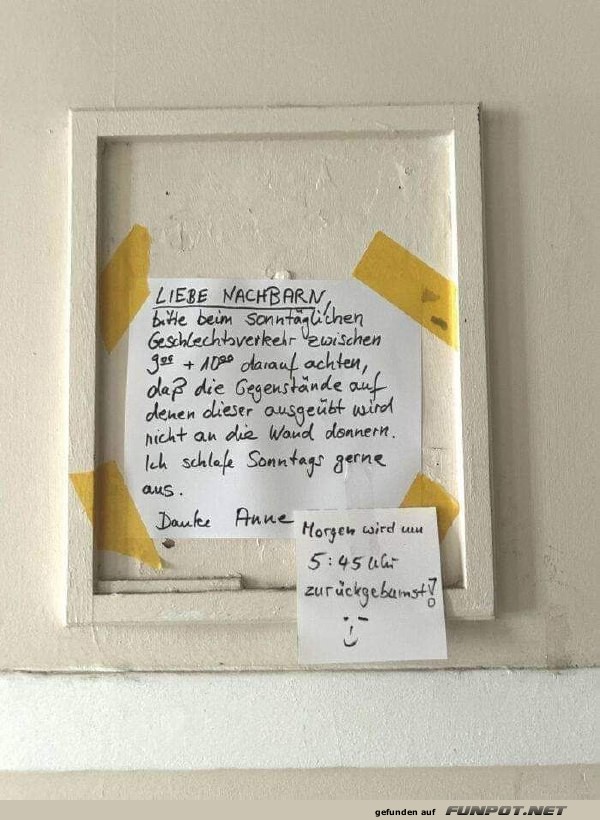 LIEBE NACHBARN,
bitte beim sonntäglichen
Geschlechtsverkehr zwischen
9⁰⁰ + 10⁰⁰ darauf achten,
daß die Gegenstände auf
denen dieser ausgeübt wird
nicht an die Wand donnern.
Ich schlafe Sonntags gerne
aus.
Danke Anne
Morgen wird um
5:45 Uhr
zurückgebumst!
gefunden auf FUNPOT.NET